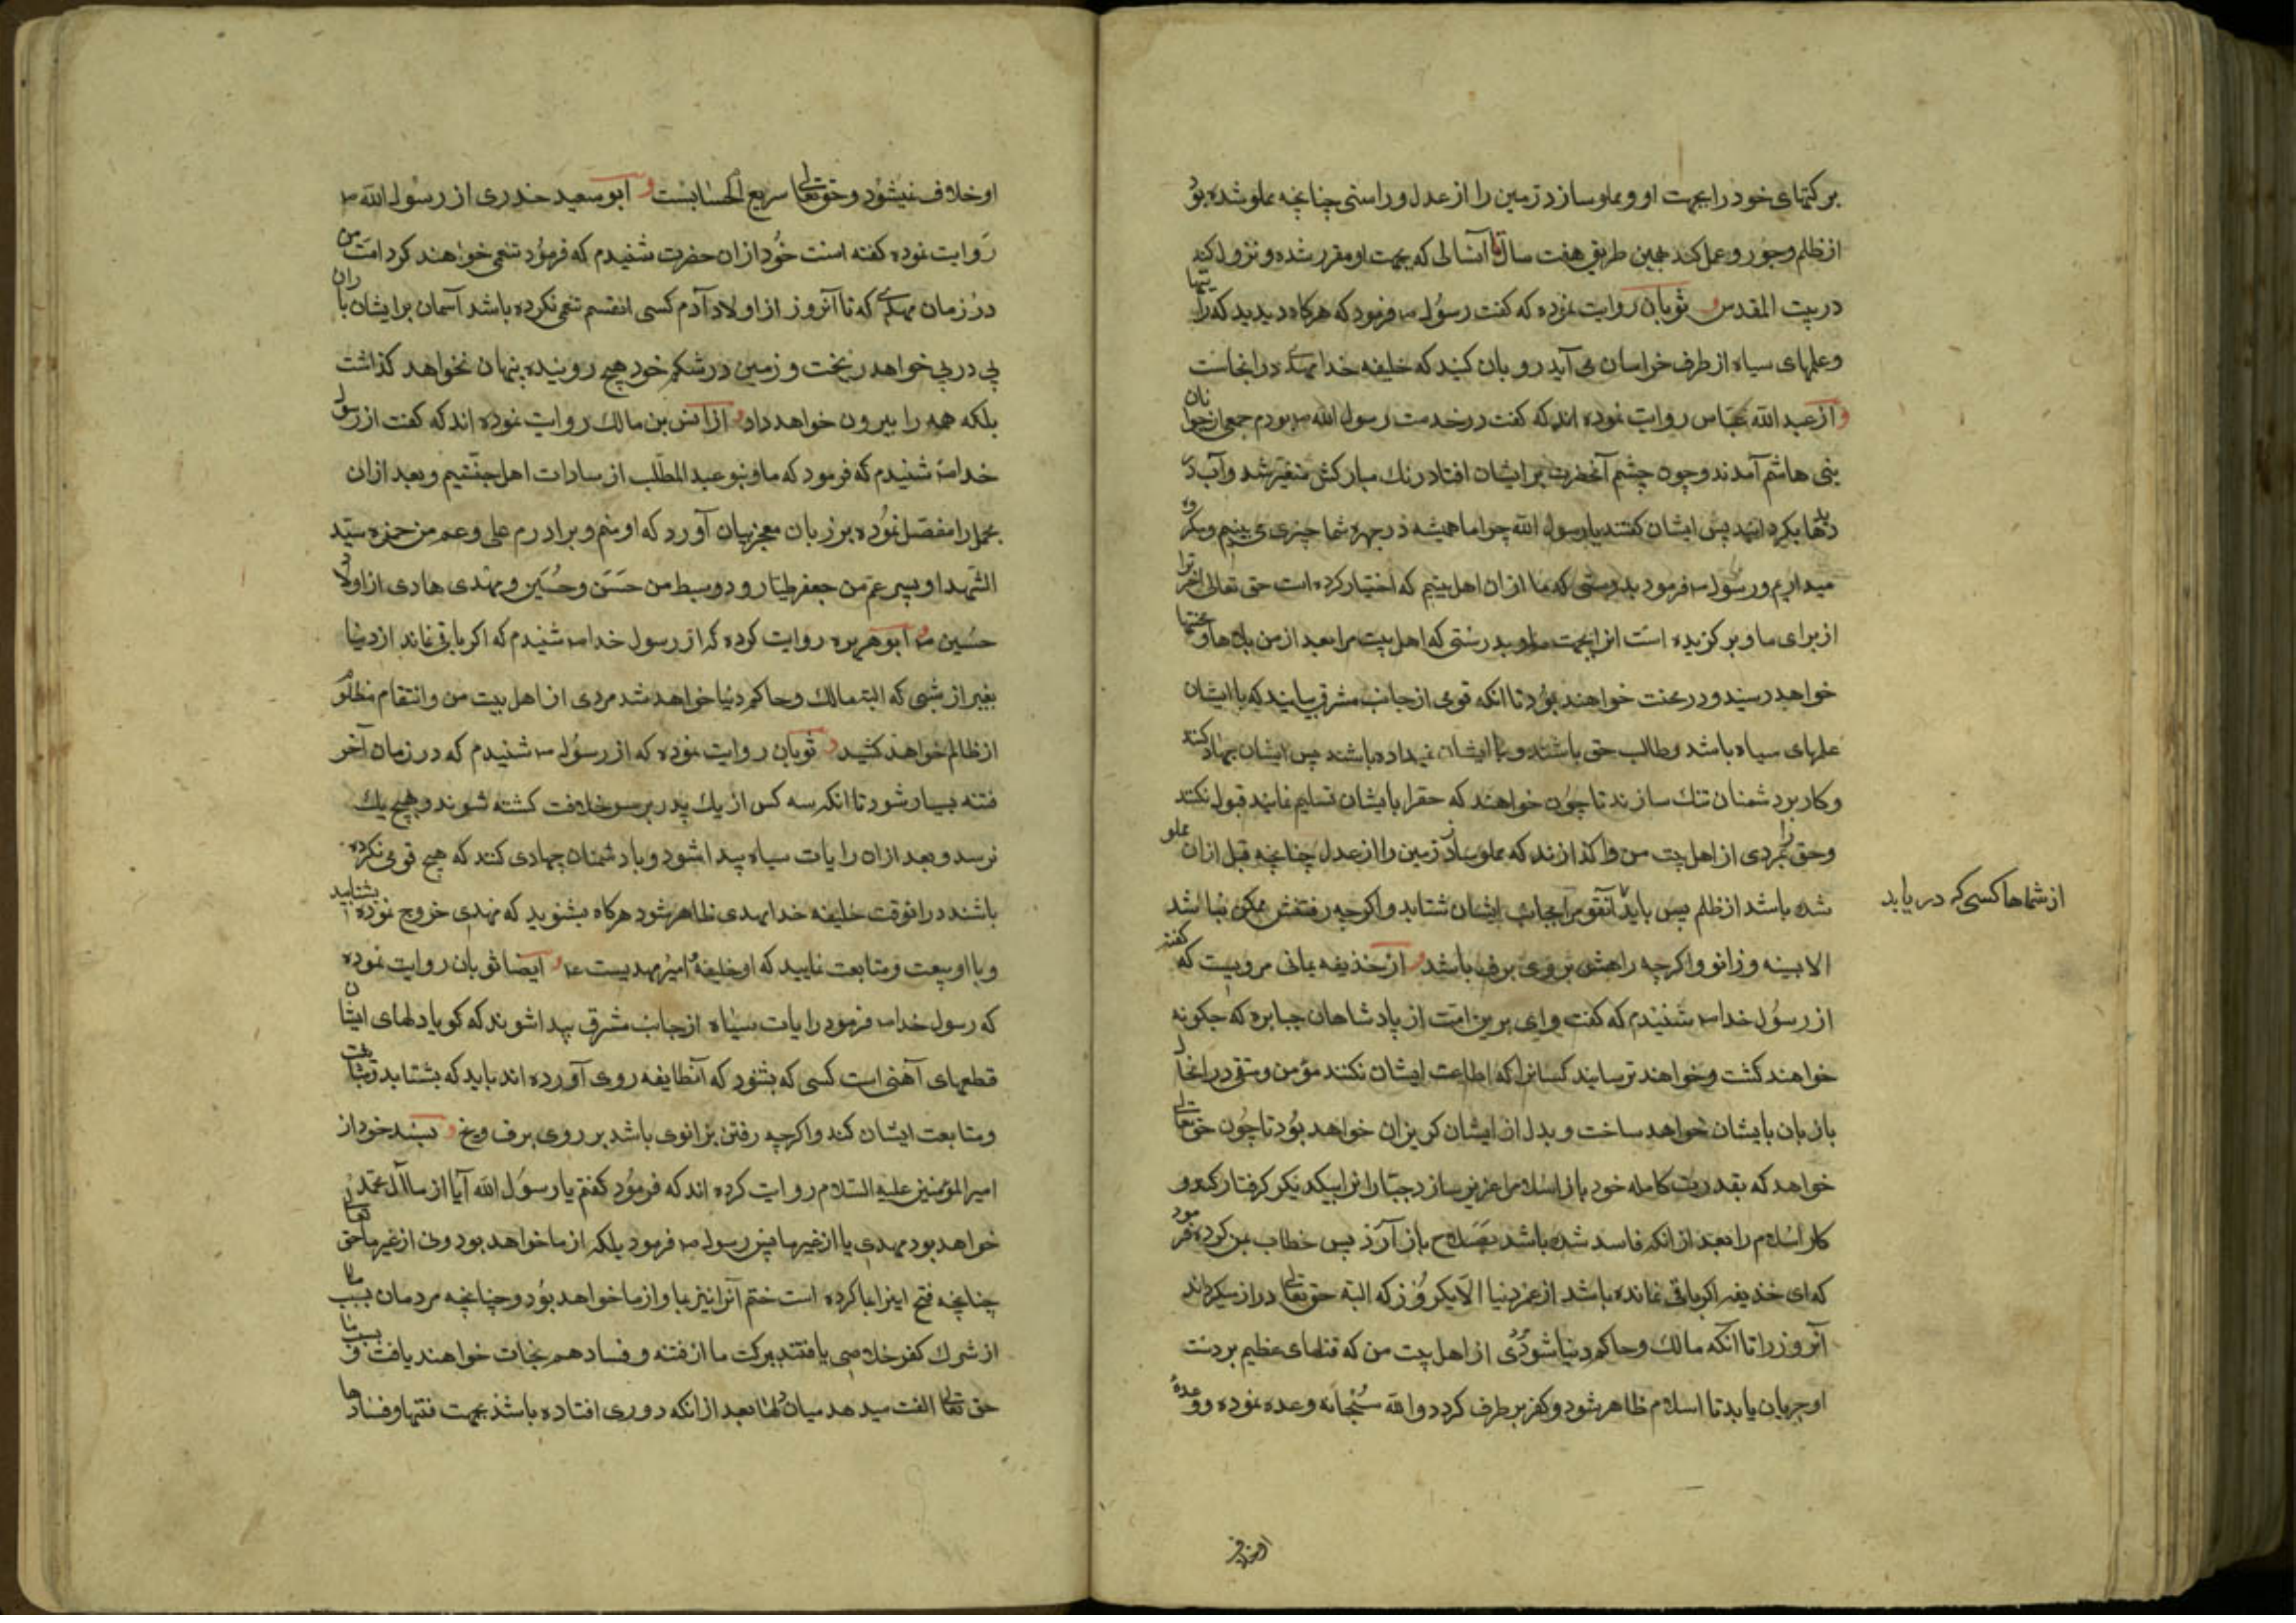 برکتهای خود را بجهت او و مملو سازد زمین را از عدل و راستی چنانچه مملو شده بود
از ظلم و جور و عمل کند بهمین طریق هفت سال تا آنسالی که بجهت او مقرر شده و نزول کند
در بیت المقدس و ثوبان روایت نموده که گفت رسول ص فرمود که هرکاه دیدید که رایتها
و علمهای سیاه از طرف خراسان می آید رو بان کنید که خلیفه خدا مهدی در انجاست
و از عبد الله عباس روایت نموده اند که گفت در خدمت رسول الله ص بودم جمعی از جوانان
بنی هاشم آمدند و چون چشم آنحضرت بر ایشان افتاد رنك مبارکش متغیر شد و آب در
دیدها بکردانید پس ایشان کفتند یا رسول الله چرا ما همیشه در چهره شما چیزی می بینیم و مکروه
میداریم و رسول ص فرمود بدرستی که ما از ان اهل بیتیم که اختیار کرده است حق تعالی اخرترا
از برای ما و بر کزیده است انرا بجهت ما و بدرستی که اهل بیت مرا بعد از من بلاها و محنتها
خواهد رسید و در محنت خواهند بود تا انکه قومی از جانب مشرق بیایند که با ایشان
علمهای سیاه باشد و طالب حق باشند و با ایشان نداده باشند پس ایشان جهاد کنند
و کار بر دشمنان تنك سازند تا چون خواهند که حقرا بایشان تسلیم نمایند قبول نکنند
و حق را بمردی از اهل بیت من واکذارند که مملو سازد زمین را از عدل چنانچه قبل از ان مملو
شده باشد از ظلم پس باید آنقوم را بجانب ایشان شتابد و اکرچه رفتنش ممکن نباشد
از شماها کسی که در یابد
الا بسینه و زانو و اکرچه راهش بر روی برف باشد و از حذیفه یمانی مرویست که گفته
از رسول خدا ص شنیدم که گفت وای برین امت از پادشاهان جبابره که چکونه
خواهند کشت و خواهند ترسانید کسانیرا که اطاعت ایشان نکنند مؤمن و متقی در انحال
بازبان بایشان خواهد ساخت و بدل از ایشان کریزان خواهد بود تا چون حق تعالی
خواهد که بقدرت کامله خود باز اسلام را عزیز سازد جبارانرا بیکدیکر کرفتار کند و
کار اسلام را بعد از انکه فاسد شده باشد بصلاح باز آرد پس خطاب بمن کرده فرمود
که ای حذیفه اکر باقی نمانده باشد از عمر دنیا الا یکروز که البته حق تعالی دراز میکرداند
آنروز را تا آنکه مالك و حاکم دنیا شود مردی از اهل بیت من که فتنهای عظیم بر دست
او جریان یابد تا اسلام ظاهر شود و کفر برطرف کردد و الله سبحانه وعده نموده و وعدهٔ
او خلاف
او خلاف نمیشود و حق تعالی سریع الحسابست و ابو سعید خدری از رسول الله ص
روایت نموده کفته است خود از ان حضرت شنیدم که فرمود تنعمی خواهند کرد امت من
در زمان مهدی که تا آنروز از اولاد آدم کسی انقسم تنعمی نکرده باشد آسمان بر ایشان باران
پی در پی خواهد ریخت و زمین در شکم خود هیچ رویند پنهان نخواهد کذاشت
بلکه همه را بیرون خواهد داد و از انس بن مالك روایت نموده اند که کفت از رسول
خدا ص شنیدم که فرمود که ما و بنو عبد المطلب از سادات اهل جنتیم و بعد ازان
مجمل را مفصل نموده بر زبان معجز بیان آورد که او منم و برادرم علی و عم من حمزه سید
الشهدا و پسر عم من جعفر طیار و دو سبط من حسن و حسین و مهدی هادی از اولاد
حسین ع و ابو هریره روایت کرده که از رسول خدا ص شنیدم که اکر باقی نماند از دنیا
بغیر از شبی که البته مالك و حاکم دنیا خواهد شد مردی از اهل بیت من و انتقام مظلوم
از ظالم خواهد کشید و ثوبان روایت نموده که از رسول ص شنیدم که در زمان آخر
فتنه بسیار شود تا انکه سه کس از یك پدر بر سر خلافت کشته شوند و بهیچ یك
نرسد و بعد ازان رایات سیاه پیدا شود و با دشمنان جهادی کنند که هیچ قومی نکرده
باشند در انوقت خلیفه خدا مهدی ظاهر شود هرکاه بشنوید که مهدی خروج نموده بشتابید
و با او بیعت و متابعت نمایید که او خلیفه و امیر مهدیست ع و ایضا ثوبان روایت نموده
که رسول خدا ص فرمود رایات سیاه از جانب مشرق پیدا شوند که کویا دلهای ایشان
قطعهای آهنی است کسی که بشنود که آنطایفه روی آورده اند باید که بشتابد
و متابعت ایشان کند و اکرچه رفتن بزانوی باشد بر روی برف و یخ و بسند خود از
امیر المؤمنین علیه السلام روایت کرده اند که فرمود کفتم یا رسول الله آیا از ما آل محمد
خواهد بود مهدی یا از غیر ما پس رسول ص فرمود بلکه از ما خواهد بود و نی از غیر ما حق تعالی
چنانچه فتح اینرا بما کرده است ختم آنرا نیز بما و از ما خواهد بود و چنانچه مردمان بسبب ما
از شرك کفر خلاصی یافتند ببرکت ما از فتنه و فساد هم نجات خواهند یافت و بسبب ما
حق تعالی الفت میدهد میان دلها بعد از انکه دوری افتاده باشد بجهت فتنها و فسادها